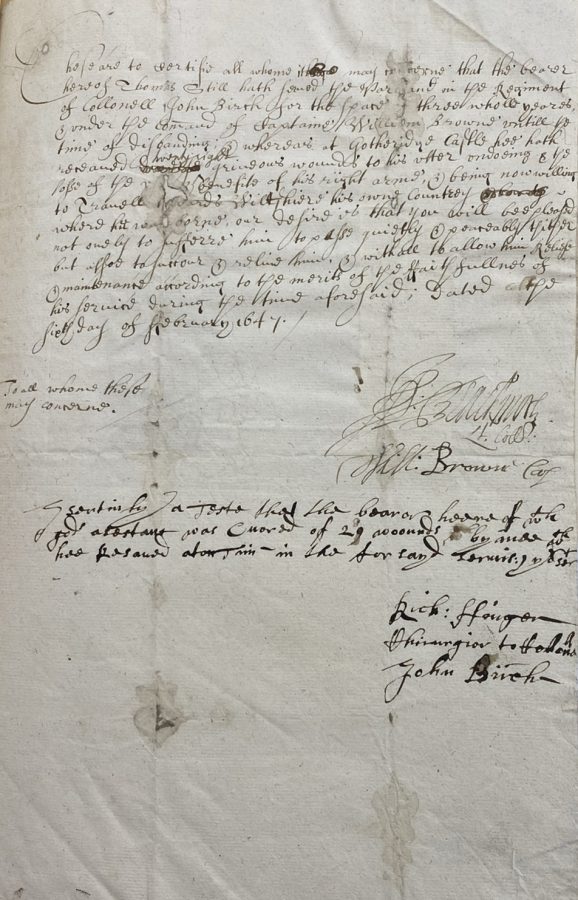 These are to Certifie all whome it may concerne that the bearer
hereof Thomas Still hath served the Parliamt in the Regiment
of Collonell John Birch for the space of three whole yeares,
& under the comand of Captaine William Browne untill the
time of disbanding, & whereas at Gotheridge Castle hee hath
receaved twenty eight grievous wounds to his utter undoeing & the
losse of the benefite of his right arme, & being now willing
to Travell towards Wiltshiere his owne Countrey
where he was borne, our desire is that you will bee pleased
not onely to suffere him to passe quietly & peaceably thither
but allsoe to succour & relieve him, & withall to allow him Reliefe
& maintenance according to the merits of the faithfullnes of
his service during the time aforesaid; Dated the
sixth day of February 1647.
To all whome these
may concerne.
Lt. Coll:
Will: Browne Cap
I sertinly a teste that the bearor heere of wth
was Cuored of 29 woounds by mee wch
hee Resaued in the for sayd servis:
Rich: ffinger
Chirurgior to
John Birch